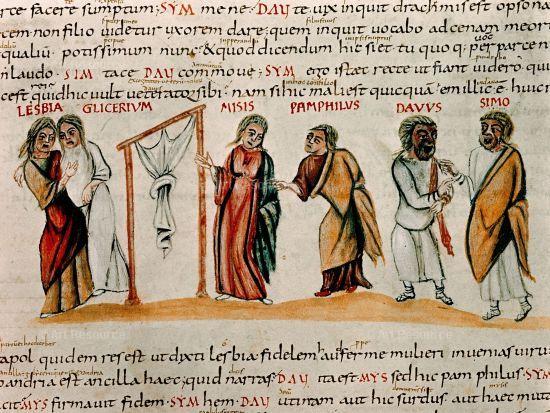 rce facere sumptum; SYM me ne · DAV te· vix inquit drachmis est opsona
em non filio videtur uxorem dare; quem inquit vocabo ad cenam meor
qualiū potissimum nunc & quod dicendum hic siet tu quoq; per parce n
laudo· SIM tace DAV commove; SYM ego istaec recte ut fiant videro
cest quid hic vult veterator sibi· nam si hic mali est quicquā
LESBIA GLICERIUM MISIS PAMPHILUS DAVUS SIMO
Art Resource
apol quidem res est ut dixti lesbia fidelem haut ferme mulieri invenias virū
andria est ancilla haec; quid narras· DAV ita est· MYS sed hic pamphilus· SYM
cit MYS firmavit fidem· SYM hem· DAV utinam aut hic surdus aut haec muta